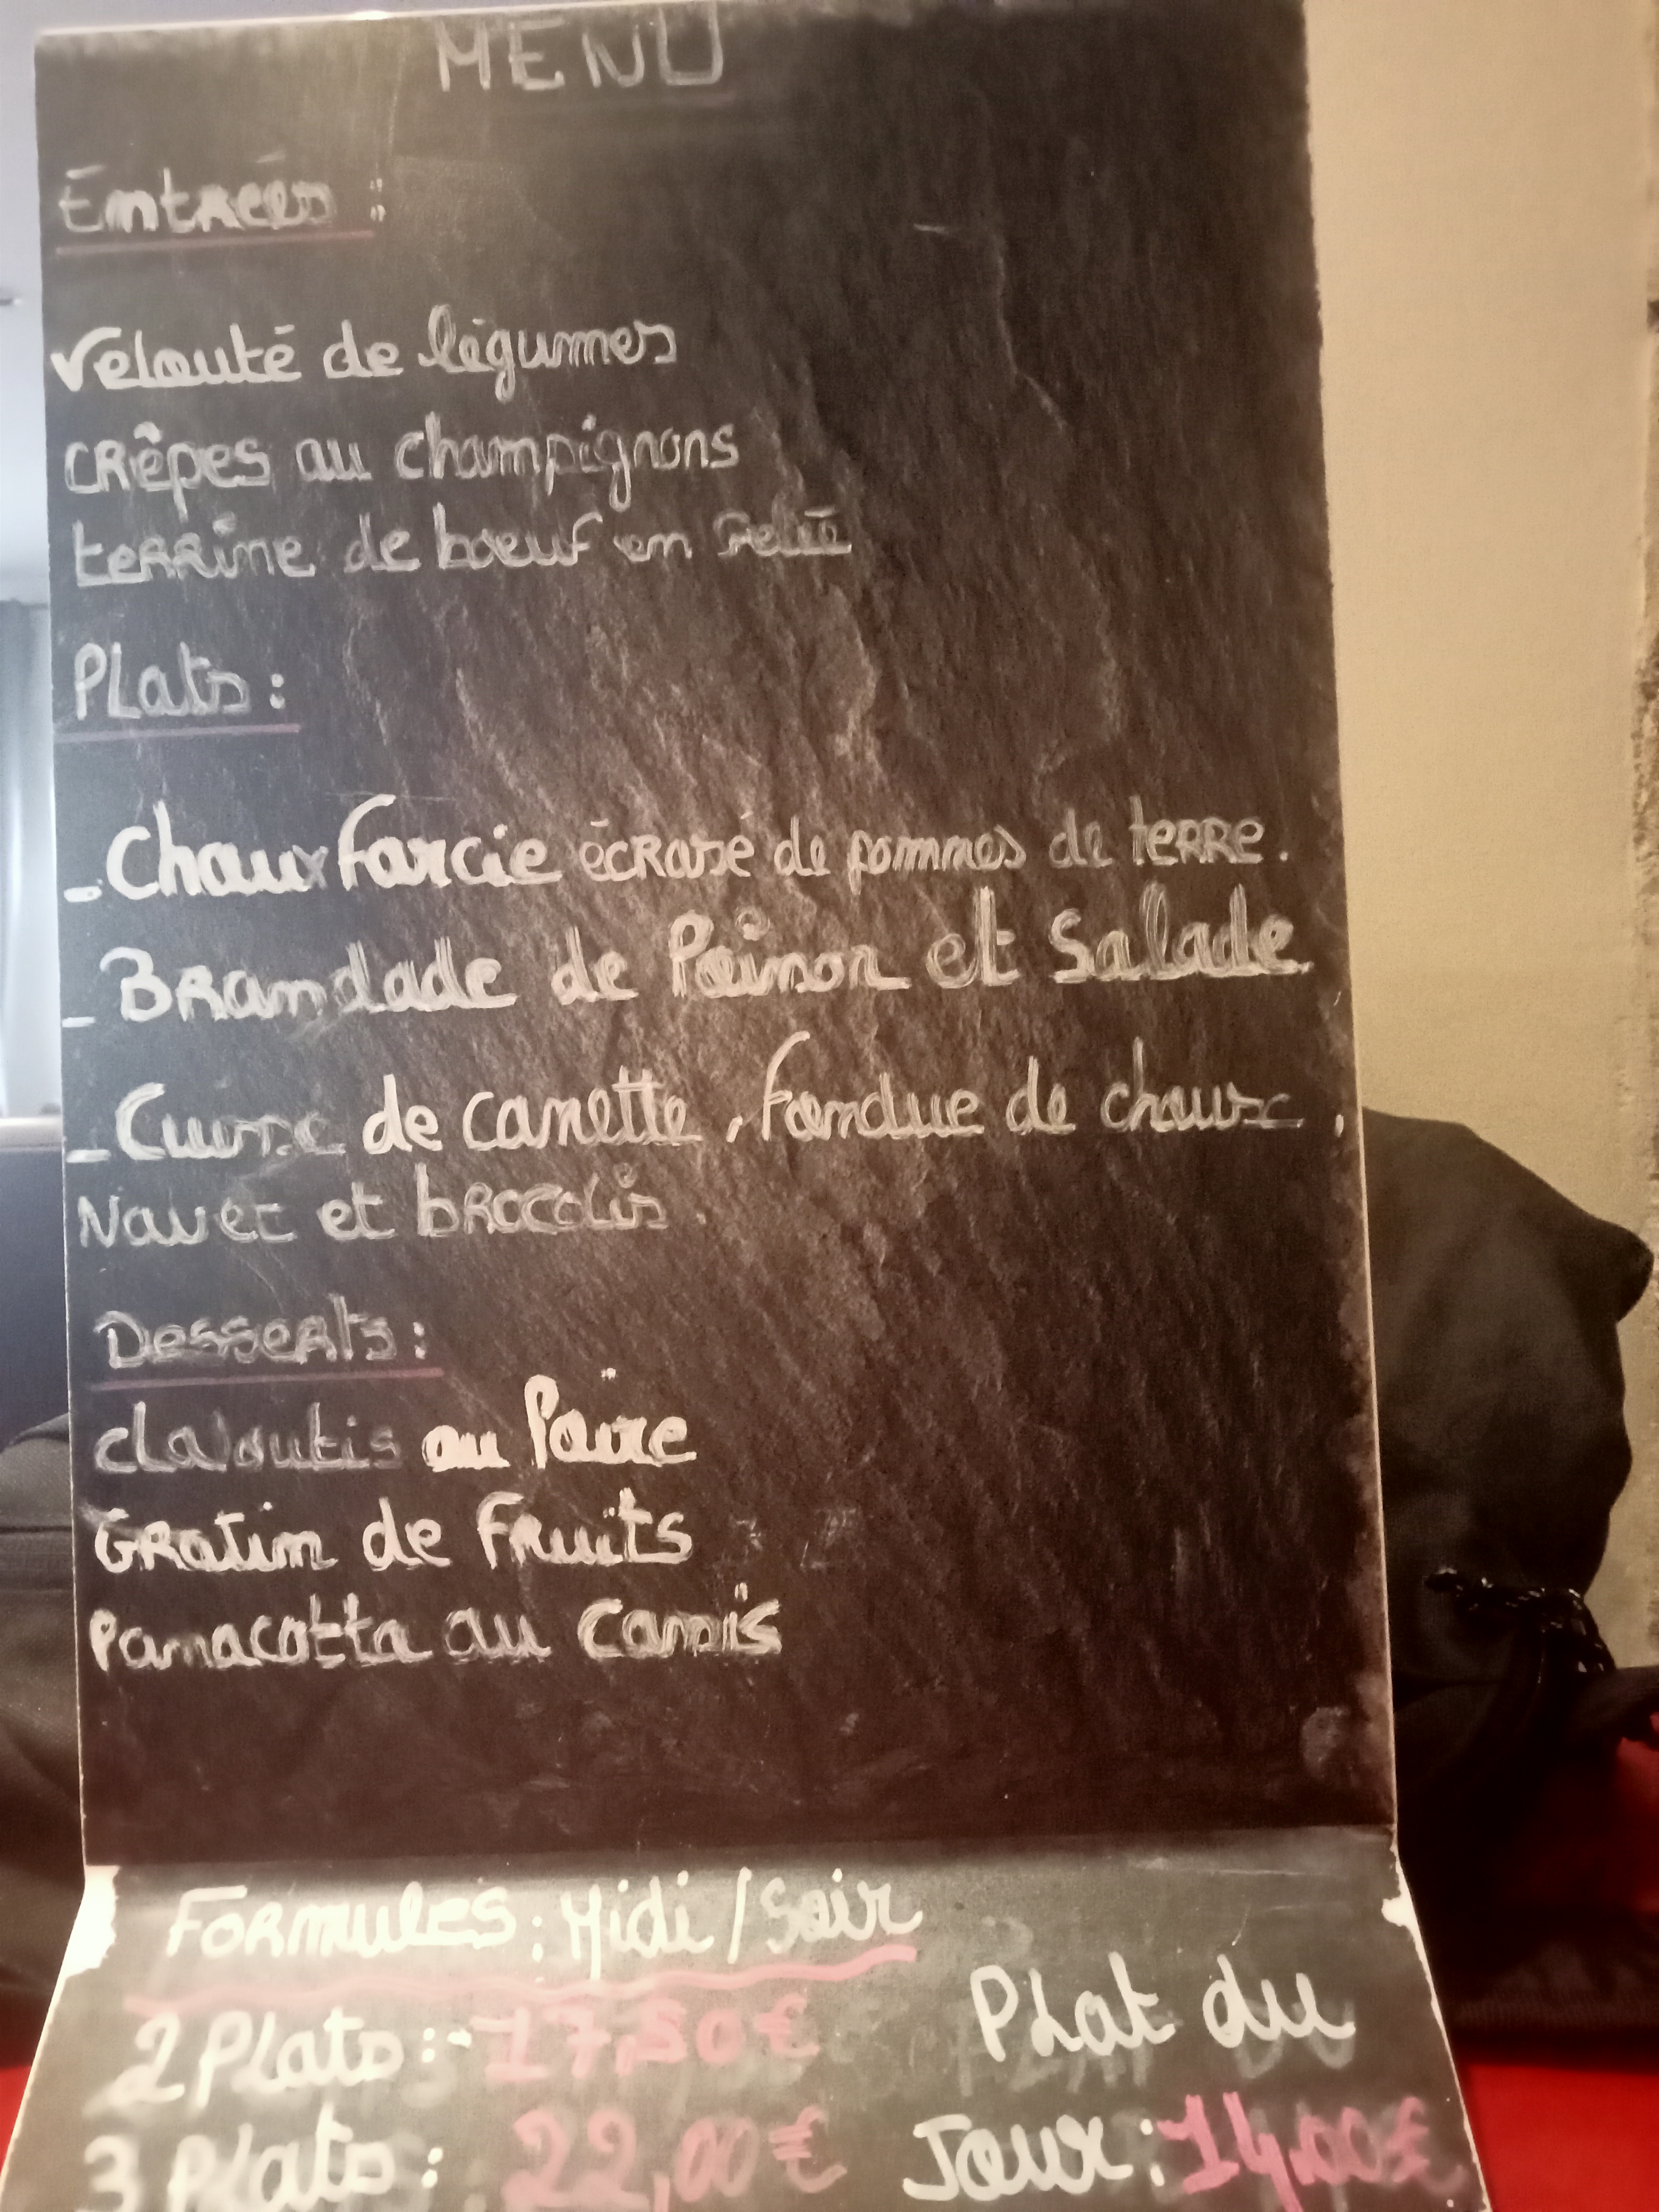 MENU
Entrées :
Velouté de légumes
CRêpes au champignons
terrine de boeuf en Gelée
PLats :
- Chaux farcie écrasé de pommes de terre.
- Brandade de Poisson et Salade.
- Cuisse de canette, fondue de choux,
Navet et brocolis.
Desserts :
clafoutis au Poire
Gratin de Fruits
Panacotta au Cassis
FORMULES : Midi / Soir
2 PLats : 17,50€
3 PLats : 22,00€
PLat du
Jour : 14,00€